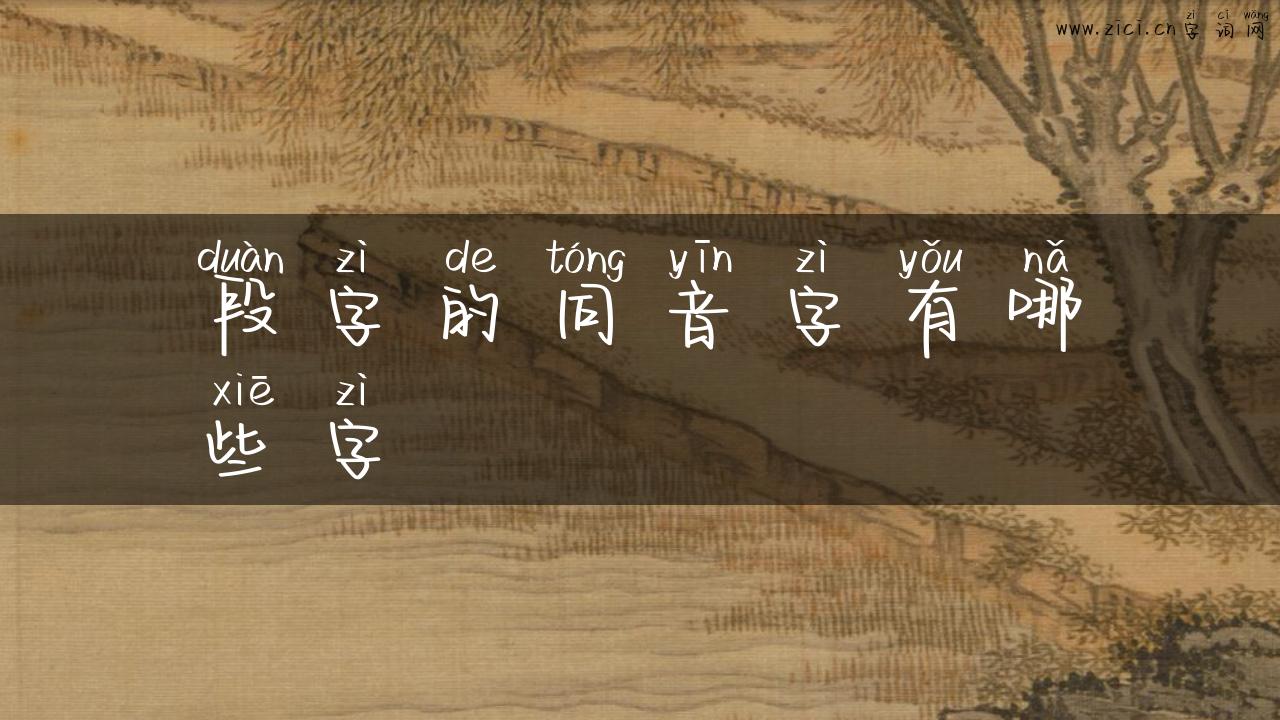 zì cí wǎng
www.zici.cn字词网
duàn zì de tóng yīn zì yǒu nǎ
段字的同音字有哪
xiē zì
些字